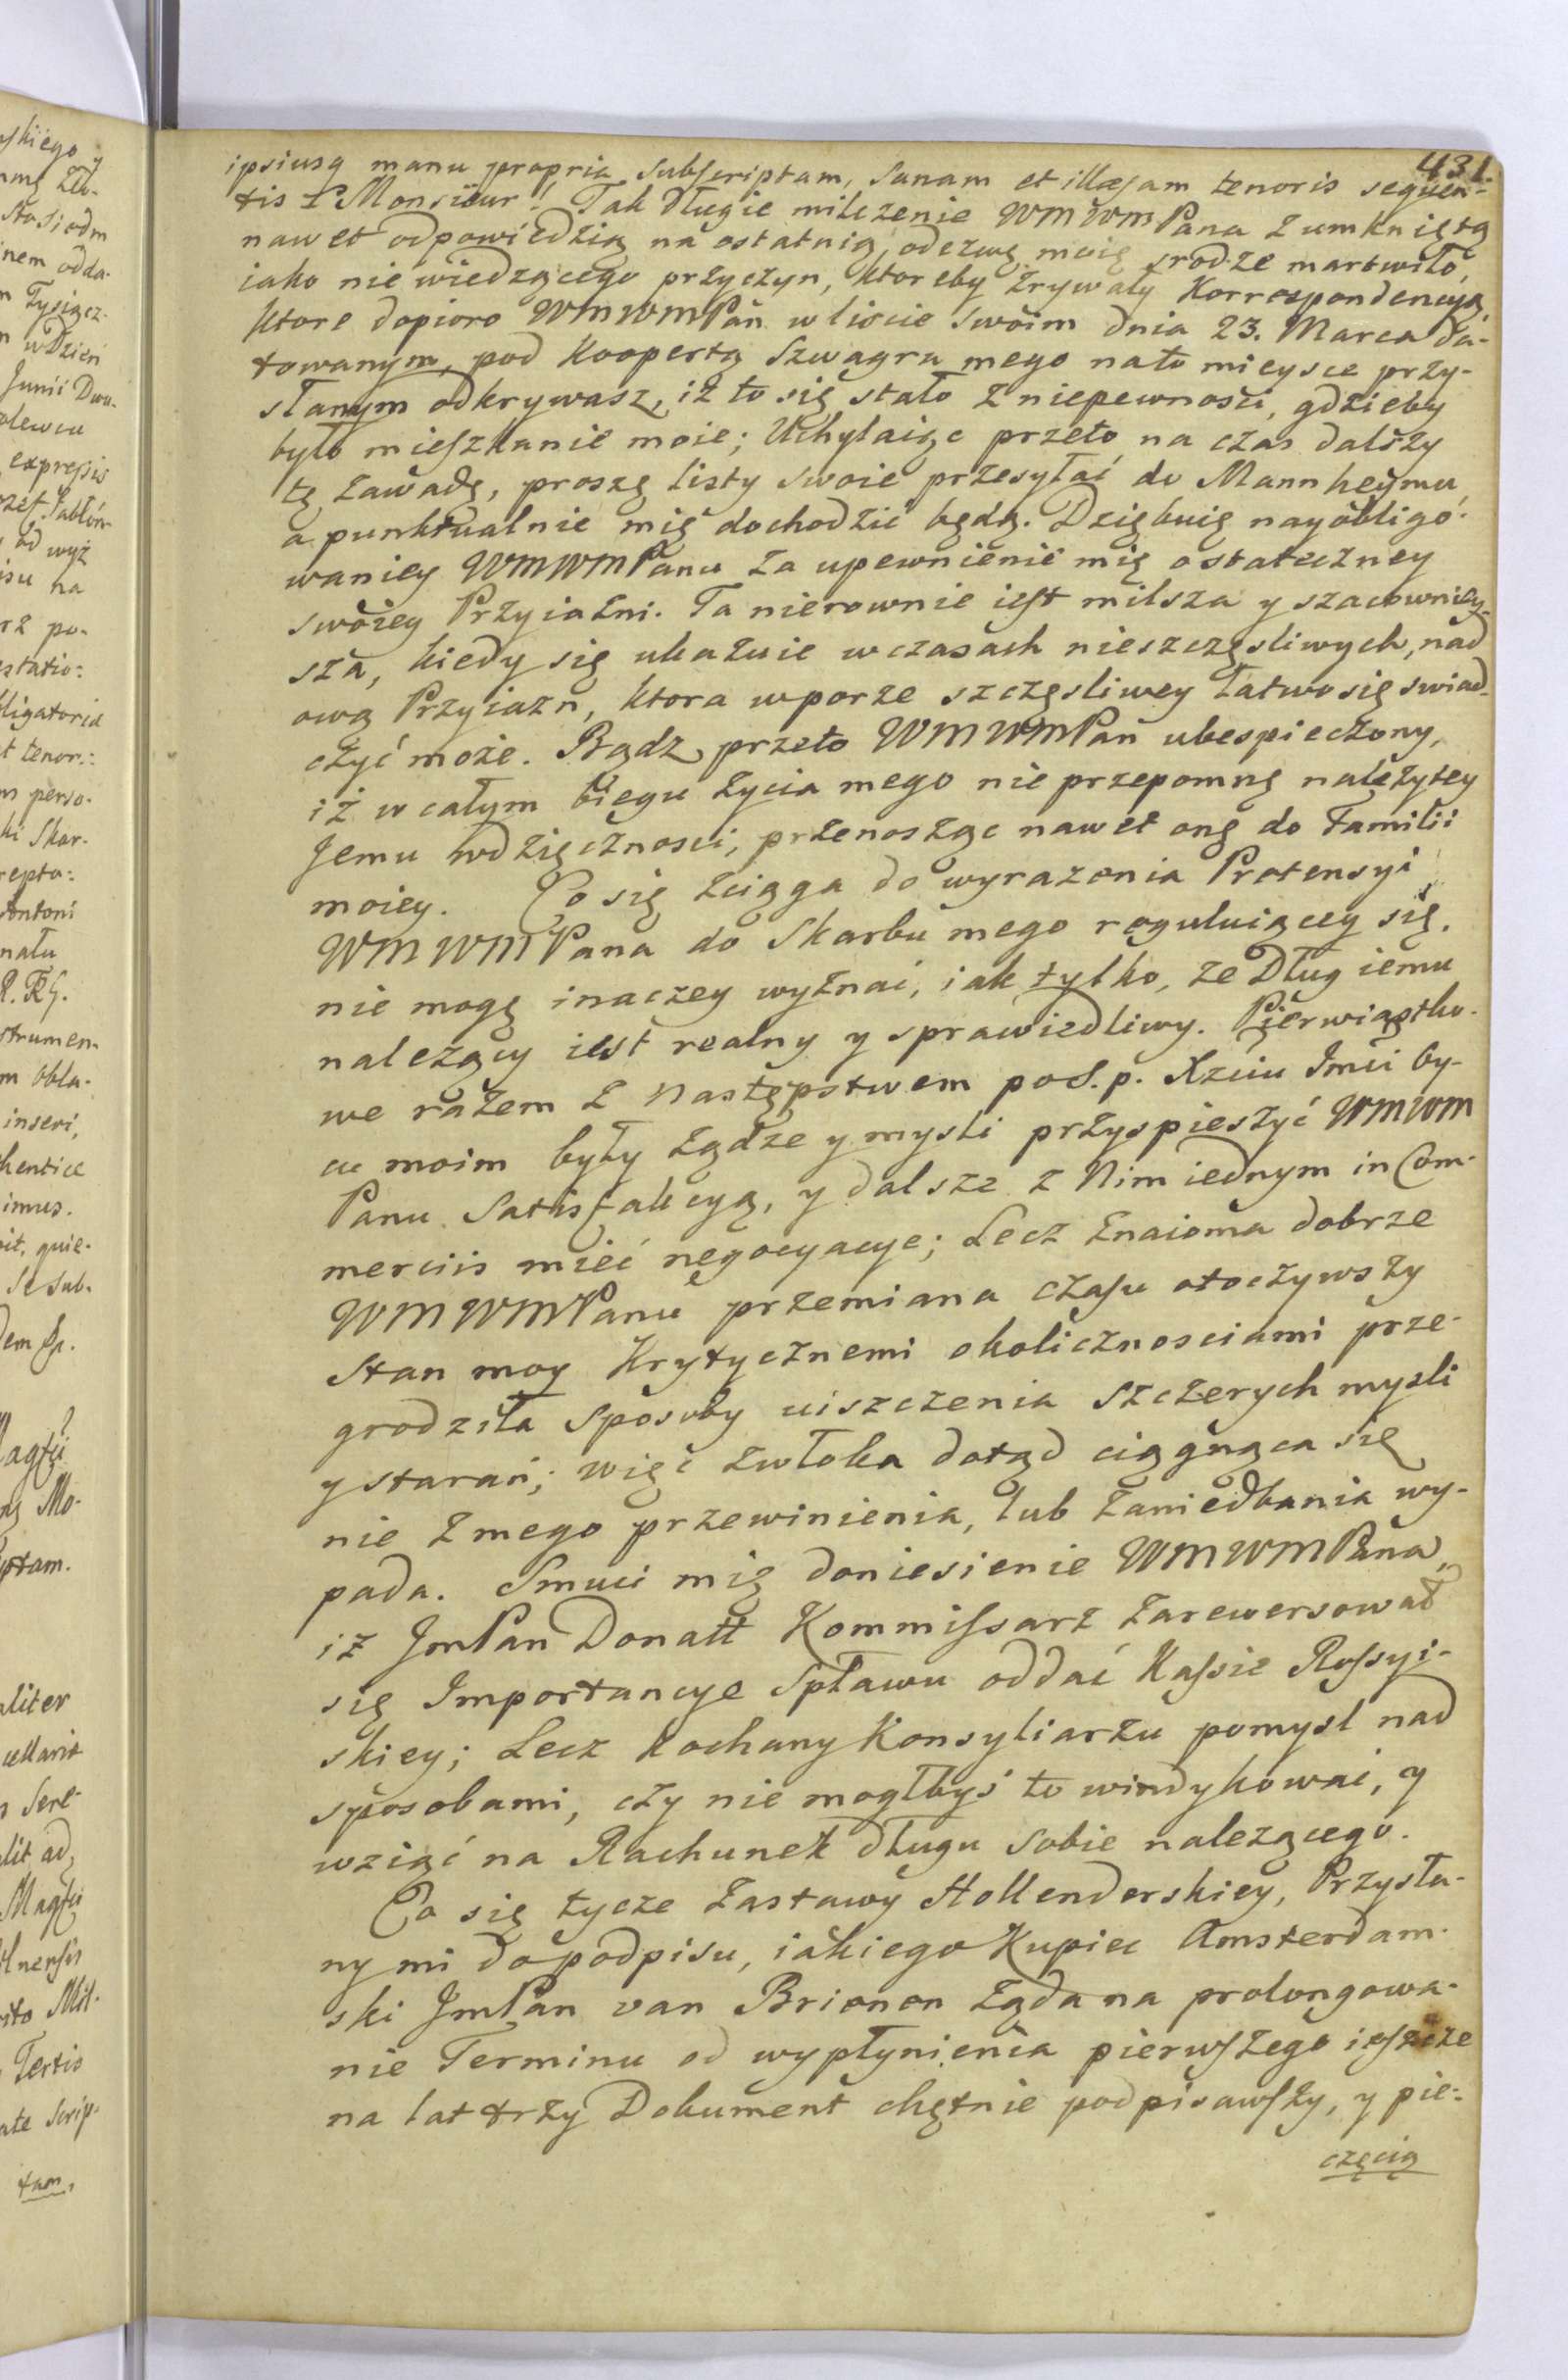 431.
ipsiusq manu propria subscriptam, sanam et illæsam tenoris sequen-
tis Monsieur! Tak długie milczenie WMWMPana z umkniętą
nawet odpowiedzią na ostatnią odezwę moię srodze martwiło,
iako nie wiedzącego przyczyn, ktoreby zrywały Korrespondencyą,
ktore dopioro WMWMPan w liscie swoim dnia 23. Marca da-
towanym, pod Koopertą Szwagra mego na to mieysce przy-
słanym odkrywasz, iż to się stało z niepewnosci, gdzieby
było mieszkanie moie; Uchylaiąc przeto na czas dalszy
tę zawadę, proszę listy swoie przesyłać do Mannheymu,
a punktualnie mię dochodzić będą. Dziękuię nayobligo-
waniey WMWMPanu za upewnienie mię o stateczney
swoiey Przyiazni. Ta nierownie iest milsza y szacowniey-
sza, kiedy się ukazuie w czasach nieszczęsliwych, nad
ową Przyiazn, ktora w porze szczęsliwey łatwo się swiad-
czyć może. Bądz przeto WMWMPan ubespieczony,
iż w całym biegu życia mego nie przepomnę należytey
Jemu wdzięcznosci, przenosząc nawet onę do Familii
moiey. Co się zciąga do wyrazenia Pretensyi
WMWMPana do Skarbu mego reguluiącey się,
nie mogę inaczey wyznać, iak tylko, ze Dług iemu
nalezący iest realny y sprawiedliwy. Pierwiastko-
we razem z Następstwem po S. p. Xzciu Jmci Oy-
cu moim były żądze y mysli przyspieszyć WMWM
Panu Satisfakcyą, y dalsze z Nim iednym in Com-
merciis mieć negocyacye; Lecz znaioma dobrze
WMWMPanu przemiana czasu otoczywszy
Stan moy Krytycznemi okolicznosciami prze-
grodziła sposoby uiszczenia szczerych mysli
y staran; więc zwłoka dotąd ciągnąca się
nie z mego przewinienia, lub zaniedbania wy-
pada. Smuci mię doniesienie WMWMPana,
iz JmPan Donatt Kommissarz zarewersował
się Importancye Spławu oddać Kassie Rossyi-
skiey; Lecz Kochany Konsyliarzu pomysl nad
sposobami, czy nie mogłbyś to windykować, y
wziąć na Rachunek długu sobie nalezącego.
Co się tycze zastawy Hollenderskiey, Przysła-
ny mi do podpisu, iakiego Kupiec Amsterdam-
ski JmPan van Brienen żąda na prolongowa-
nie Terminu od wypłynienia pierwszego ieszcze
na lat trzy Dokument chętnie podpisawszy, y pie-
częcią